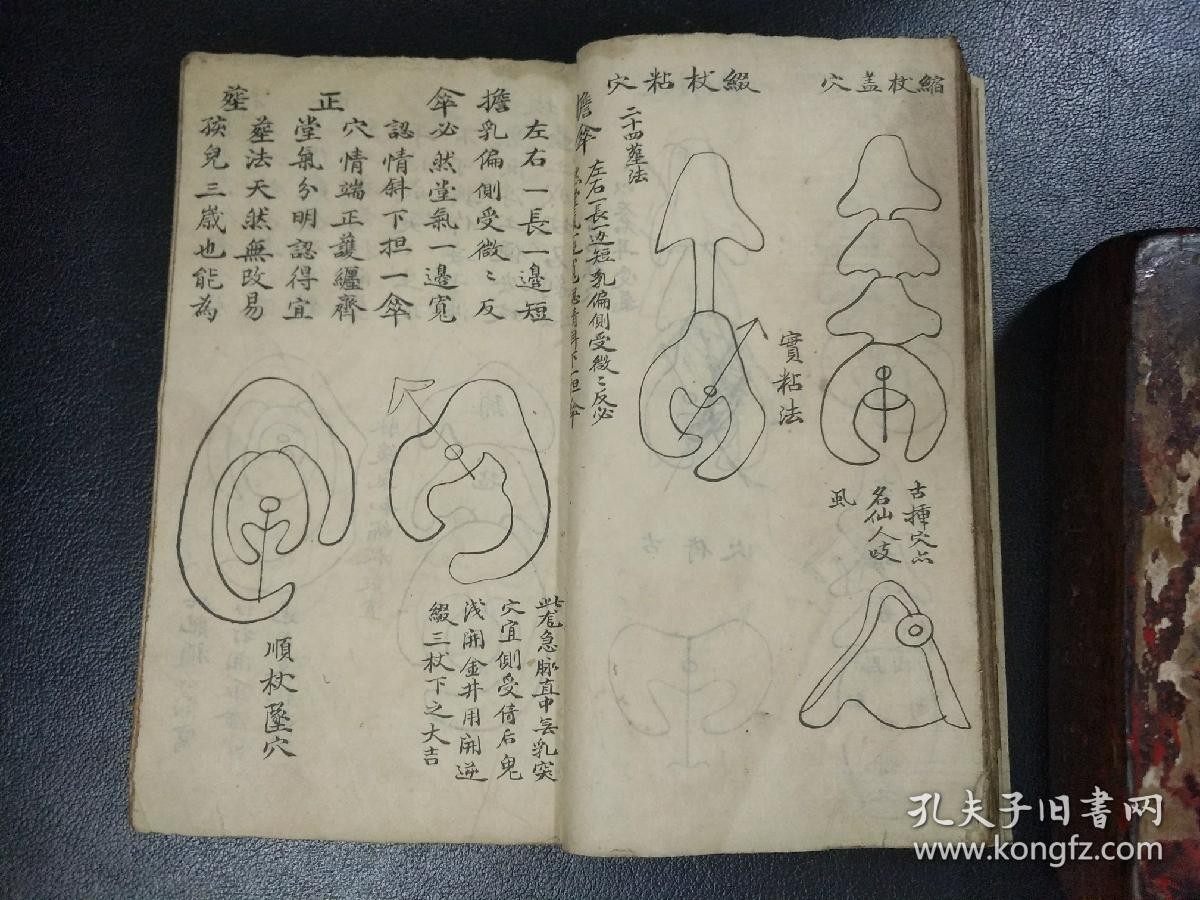 縮杖盖穴
綴杖粘穴
實粘法
古揷穴点
名仙人歧
風
二十四𦵏法
擔傘
左右一長一边短乳偏側受微〻反必
擔傘
左右一長一邊短
乳偏側受微〻反
必然堂氣一邊寬
認情斜下担一傘
正𦵏
穴情端正護纏齊
堂氣分明認得宜
𦵏法天然無改易
孩兒三歲也能為
急脉直中無乳突
穴宜側受倚后鬼
浅開金井用開逆
綴三杖下之大吉
順杖墜穴
孔夫子旧書网
www.kongfz.com